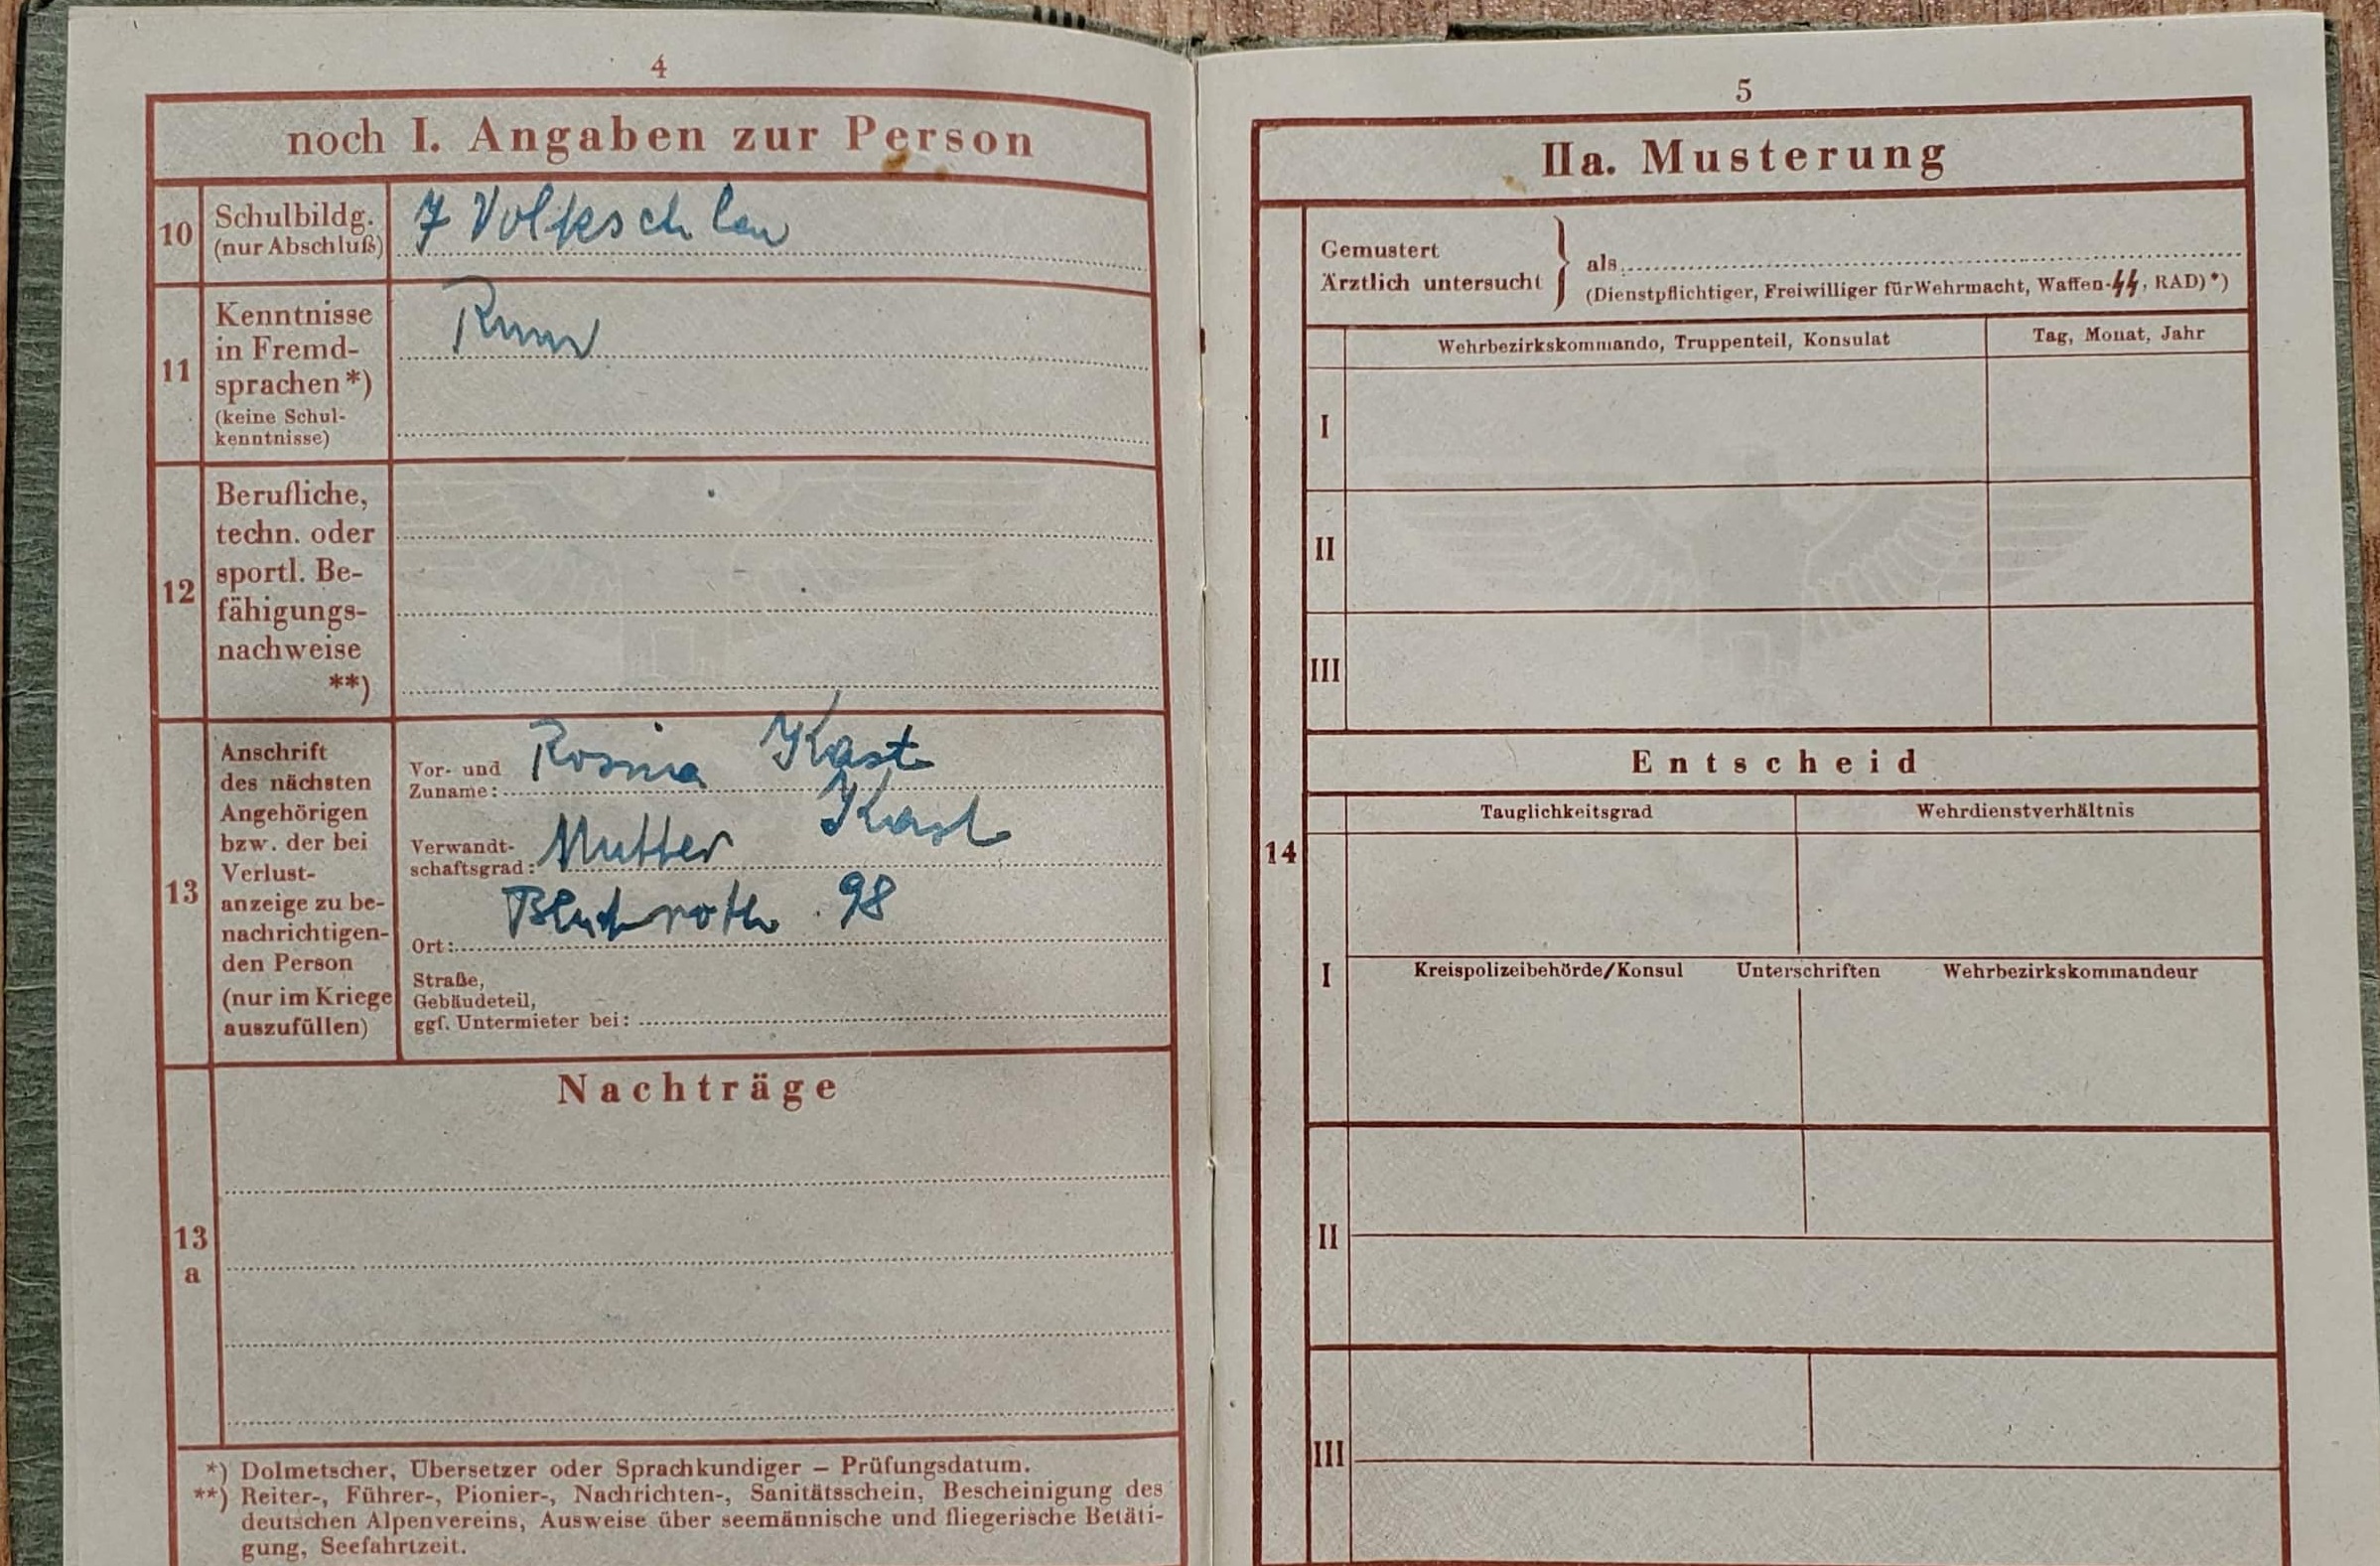 4
noch I. Angaben zur Person
10
Schulbildg.
(nur Abschluß)
7
11
Kenntnisse
in Fremd-
sprachen*)
(keine Schul-
kenntnisse)
12
Berufliche,
techn. oder
sportl. Be-
fähigungs-
nachweise
**)
13
Anschrift
des nächsten
Angehörigen
bzw. der bei
Verlust-
anzeige zu be-
nachrichtigen-
den Person
(nur im Kriege
auszufüllen)
Vor- und
Zuname:
Rosina Kast
Verwandt-
schaftsgrad:
Mutter Kast
Ort:
98
Straße,
Gebäudeteil,
ggf. Untermieter bei:
Nachträge
13
a
*) Dolmetscher, Übersetzer oder Sprachkundiger – Prüfungsdatum.
**) Reiter-, Führer-, Pionier-, Nachrichten-, Sanitätsschein, Bescheinigung des
deutschen Alpenvereins, Ausweise über seemännische und fliegerische Betäti-
gung, Seefahrtzeit.
5
IIa. Musterung
Gemustert
Ärztlich untersucht
als
(Dienstpflichtiger, Freiwilliger für Wehrmacht, Waffen-SS, RAD)*)
Wehrbezirkskommando, Truppenteil, Konsulat
Tag, Monat, Jahr
I
II
III
Entscheid
14
Tauglichkeitsgrad
Wehrdienstverhältnis
I
Kreispolizeibehörde/Konsul Unterschriften Wehrbezirkskommandeur
II
III